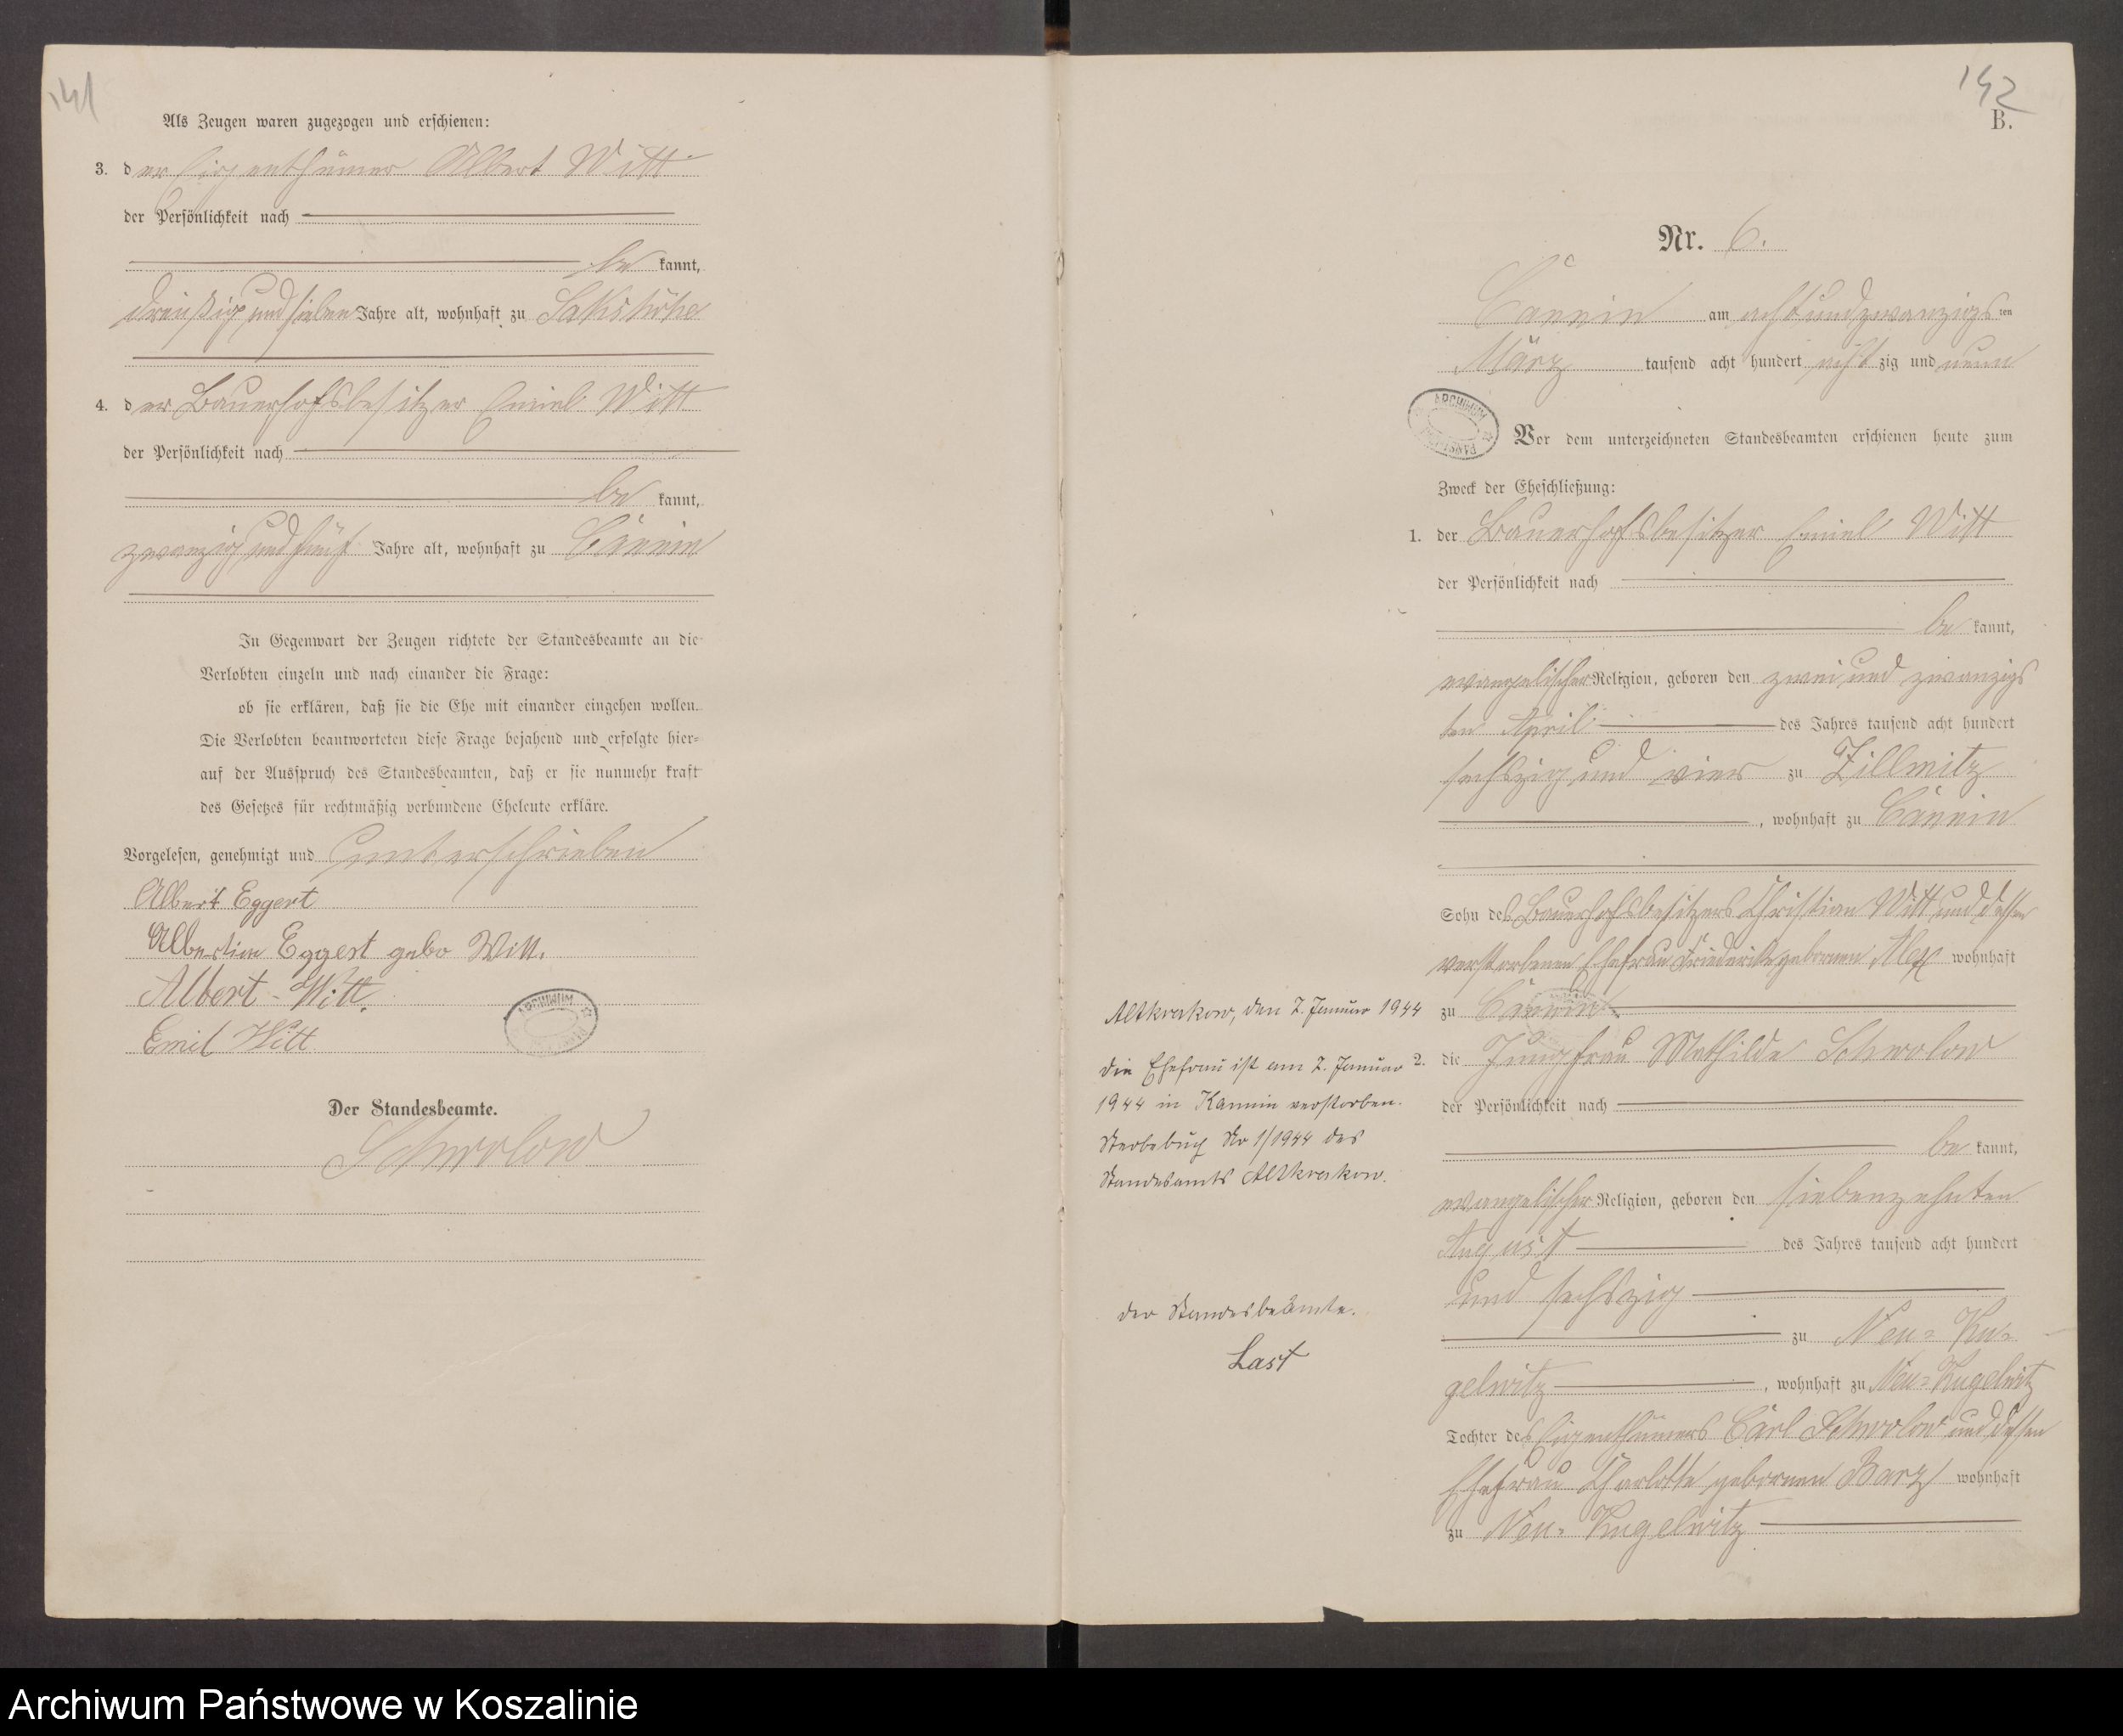 141
Als Zeugen waren zugezogen und erschienen:
3. der Eigenthümer Albert Witt
der Persönlichkeit nach
be kannt,
dreißig und sieben Jahre alt, wohnhaft zu Sakshöhe
4. der Bauerhofsbesitzer Emiel Witt
der Persönlichkeit nach
be kannt,
zwanzig und fünf Jahre alt, wohnhaft zu Cannin
In Gegenwart der Zeugen richtete der Standesbeamte an die
Verlobten einzeln und nach einander die Frage:
ob sie erklären, daß sie die Ehe mit einander eingehen wollen.
Die Verlobten beantworteten diese Frage bejahend und erfolgte hier=
auf der Ausspruch des Standesbeamten, daß er sie nunmehr kraft
des Gesetzes für rechtmäßig verbundene Eheleute erkläre.
Vorgelesen, genehmigt und unterschrieben
Albert Eggert
Albertine Eggert gebo Witt.
Albert Witt.
Emil Witt
ARCHIWUM
Der Standesbeamte.
Schwolow
142
B.
Nr. 6.
Cannin am achtundzwanzigs ten
März tausend acht hundert acht zig und neun
ARCHIWUM
Vor dem unterzeichneten Standesbeamten erschienen heute zum
Zweck der Eheschließung:
1. der Bauerhofsbesitzer Emiel Witt
der Persönlichkeit nach
be kannt,
evangelischer Religion, geboren den zwei und zwanzigs
ten April des Jahres tausend acht hundert
sechszig und vier zu Zillmitz
, wohnhaft zu Cannin
Sohn des Bauerhofsbesitzers Christian Witt und dessen
verstorbenen Ehefrau Friederike gebornen Alex wohnhaft
zu Cannin
2. die Jungfrau Mathilde Schwolow
der Persönlichkeit nach
be kannt,
evangelischer Religion, geboren den siebenzehnten
August des Jahres tausend acht hundert
und sechszig
zu Neu= Ku=
gelwitz , wohnhaft zu Neu=Kugelwitz
Tochter des Eigenthümers Carl Schwolow und dessen
Ehefrau Charlotte gebornen Barz wohnhaft
zu Neu= Kugelwitz
Altkrakow, den 7. Januar 1944
Die Ehefrau ist am 2. Januar
1944 in Kannin verstorben.
Sterbebuch No 1/1944 des
Standesamts Altkrakow.
Der Standesbeamte.
Last
Archiwum Państwowe w Koszalinie